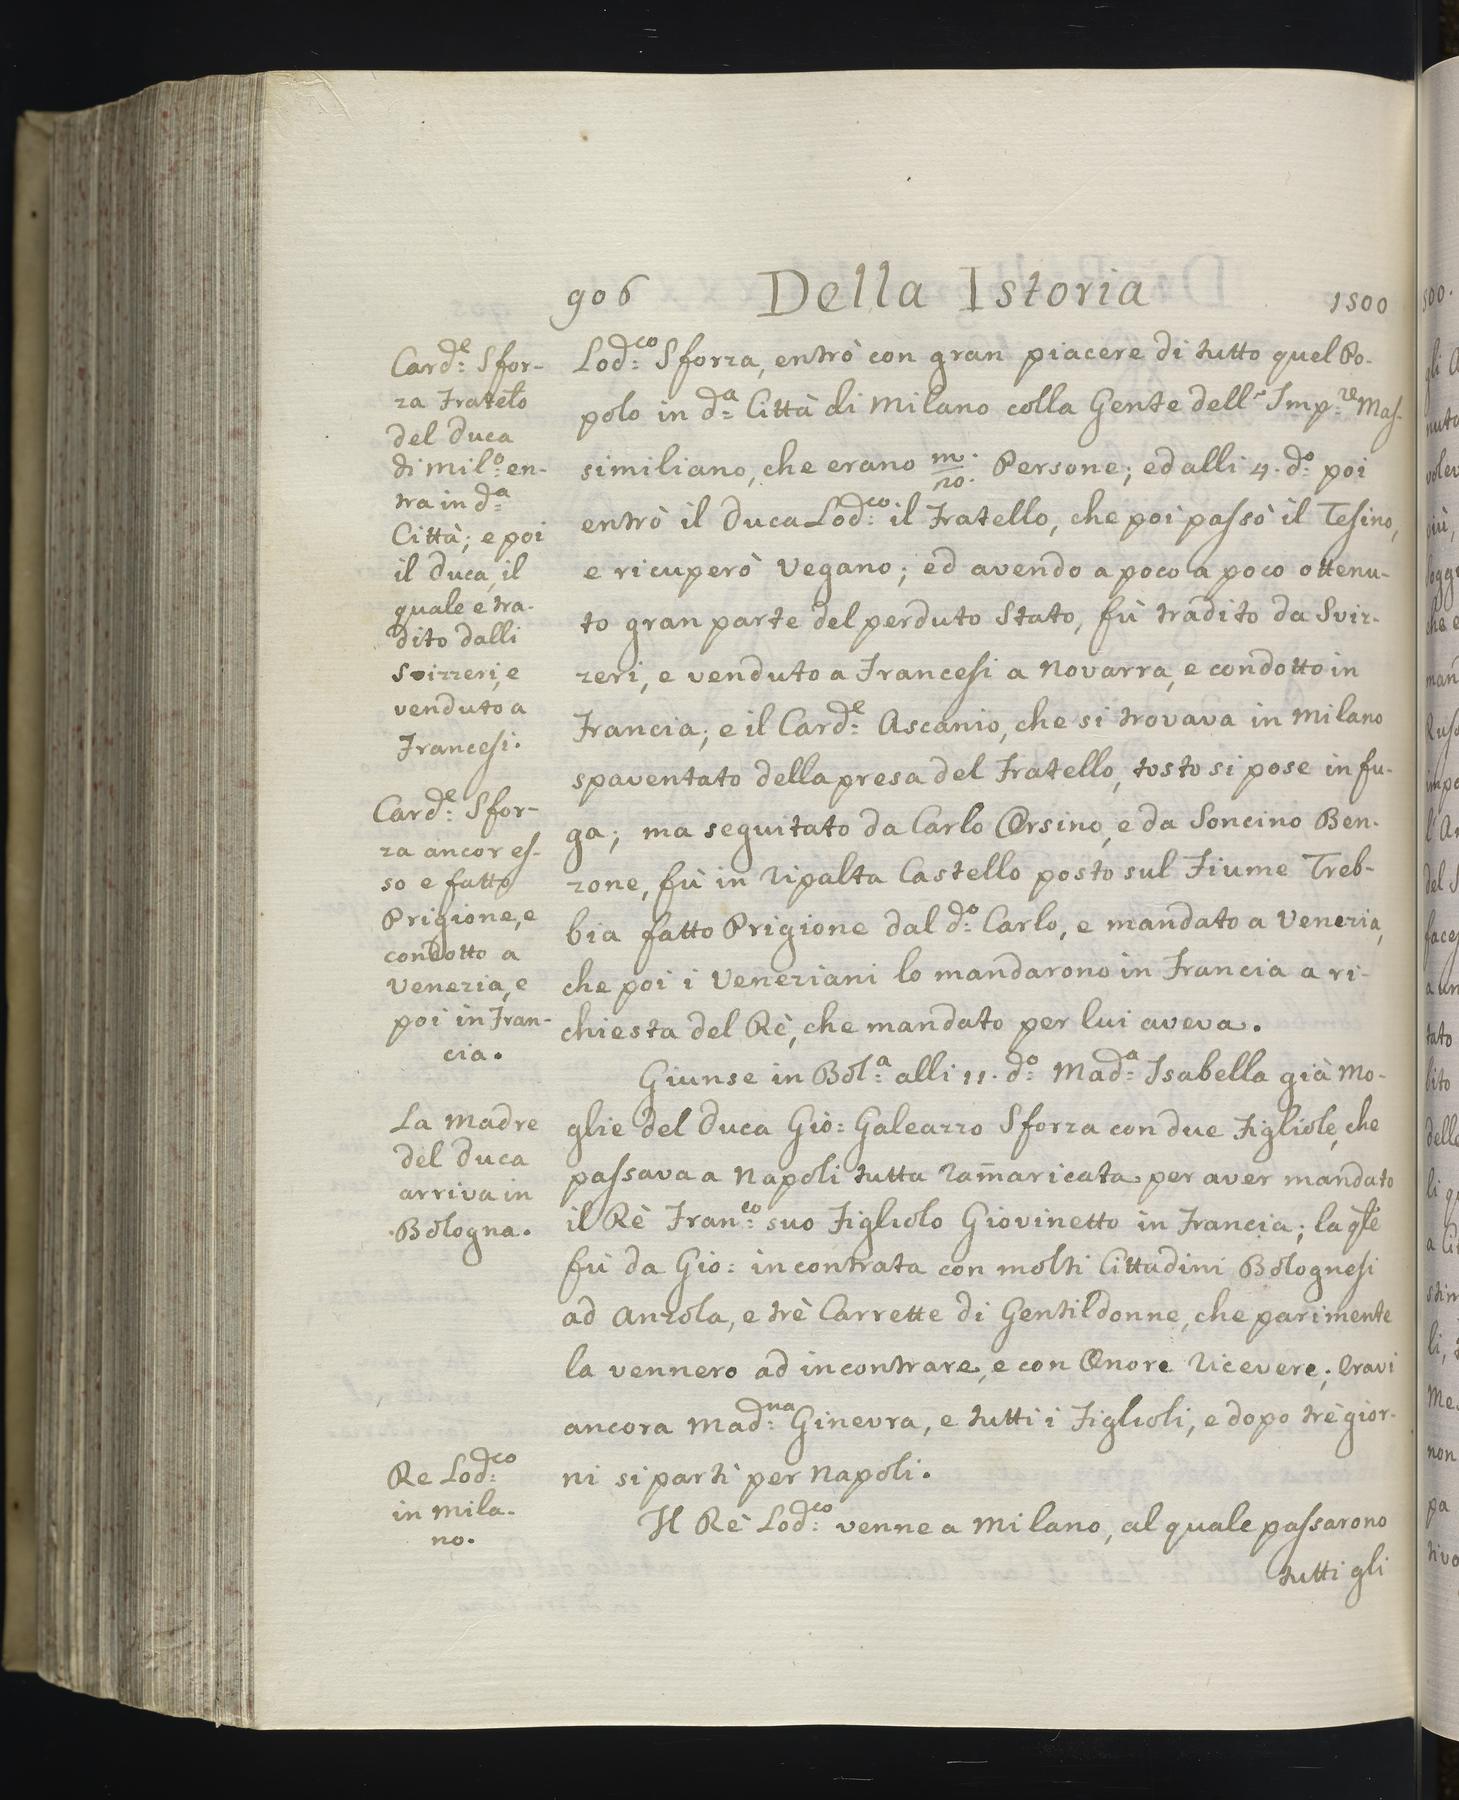 906 Della Istoria 1500
Card:e Sfor-
za Fratello
del Duca
di Mil:o en-
tra in d:a
Città; e poi
il Duca, il
quale e tra-
dito dalli
Svizzeri, e
venduto a
Francesi.
Card:e Sfor-
za ancor es-
so e fatto
Prigione, e
condotto a
Venezia, e
poi in Fran-
cia.
La Madre
del Duca
arriva in
Bologna.
Re Lod:co
in Mila-
no.
Lod:co Sforza, entrò con gran piacere di tutto quel Po-
polo in d:a Città di Milano colla Gente dell' Imp:re Mas-
similiano, che erano m/20. Persone; ed alli 4. d:o poi
entrò il Duca Lod:co il Fratello, che poi passò il Tesino,
e ricuperò Vegano; ed avendo a poco a poco ottenu-
to gran parte del perduto Stato, fù tradito da Sviz-
zeri, e venduto a Francesi a Novarra, e condotto in
Francia; e il Card:e Ascanio, che si trovava in Milano
spaventato della presa del Fratello, tosto si pose in fu-
ga; ma seguitato da Carlo Orsino, e da Soncino Ben-
zone, fù in Ripalta Castello posto sul Fiume Treb-
bia fatto Prigione dal d:o Carlo, e mandato a Venezia,
che poi i Veneziani lo mandarono in Francia a ri-
chiesta del Rè, che mandato per lui aveva.
Giunse in Bol:a alli 11. d:o Mad:a Isabella già Mo-
glie del Duca Giò: Galeazzo Sforza con due Figliole, che
passava a Napoli tutta ram̄aricata per aver mandato
il Rè Fran:co suo Figliolo Giovinetto in Francia; la qłe
fù da Gio: incontrata con molti Cittadini Bolognesi
ad Anzola, e trè Carrette di Gentildonne, che parimente
la vennero ad incontrare, e con Onore ricevere; eravi
ancora Mad:na Ginevra, e tutti i Figlioli, e dopo trè gior-
ni si partì per Napoli.
Il Rè Lod:co venne a Milano, al quale passarono
tutti gli